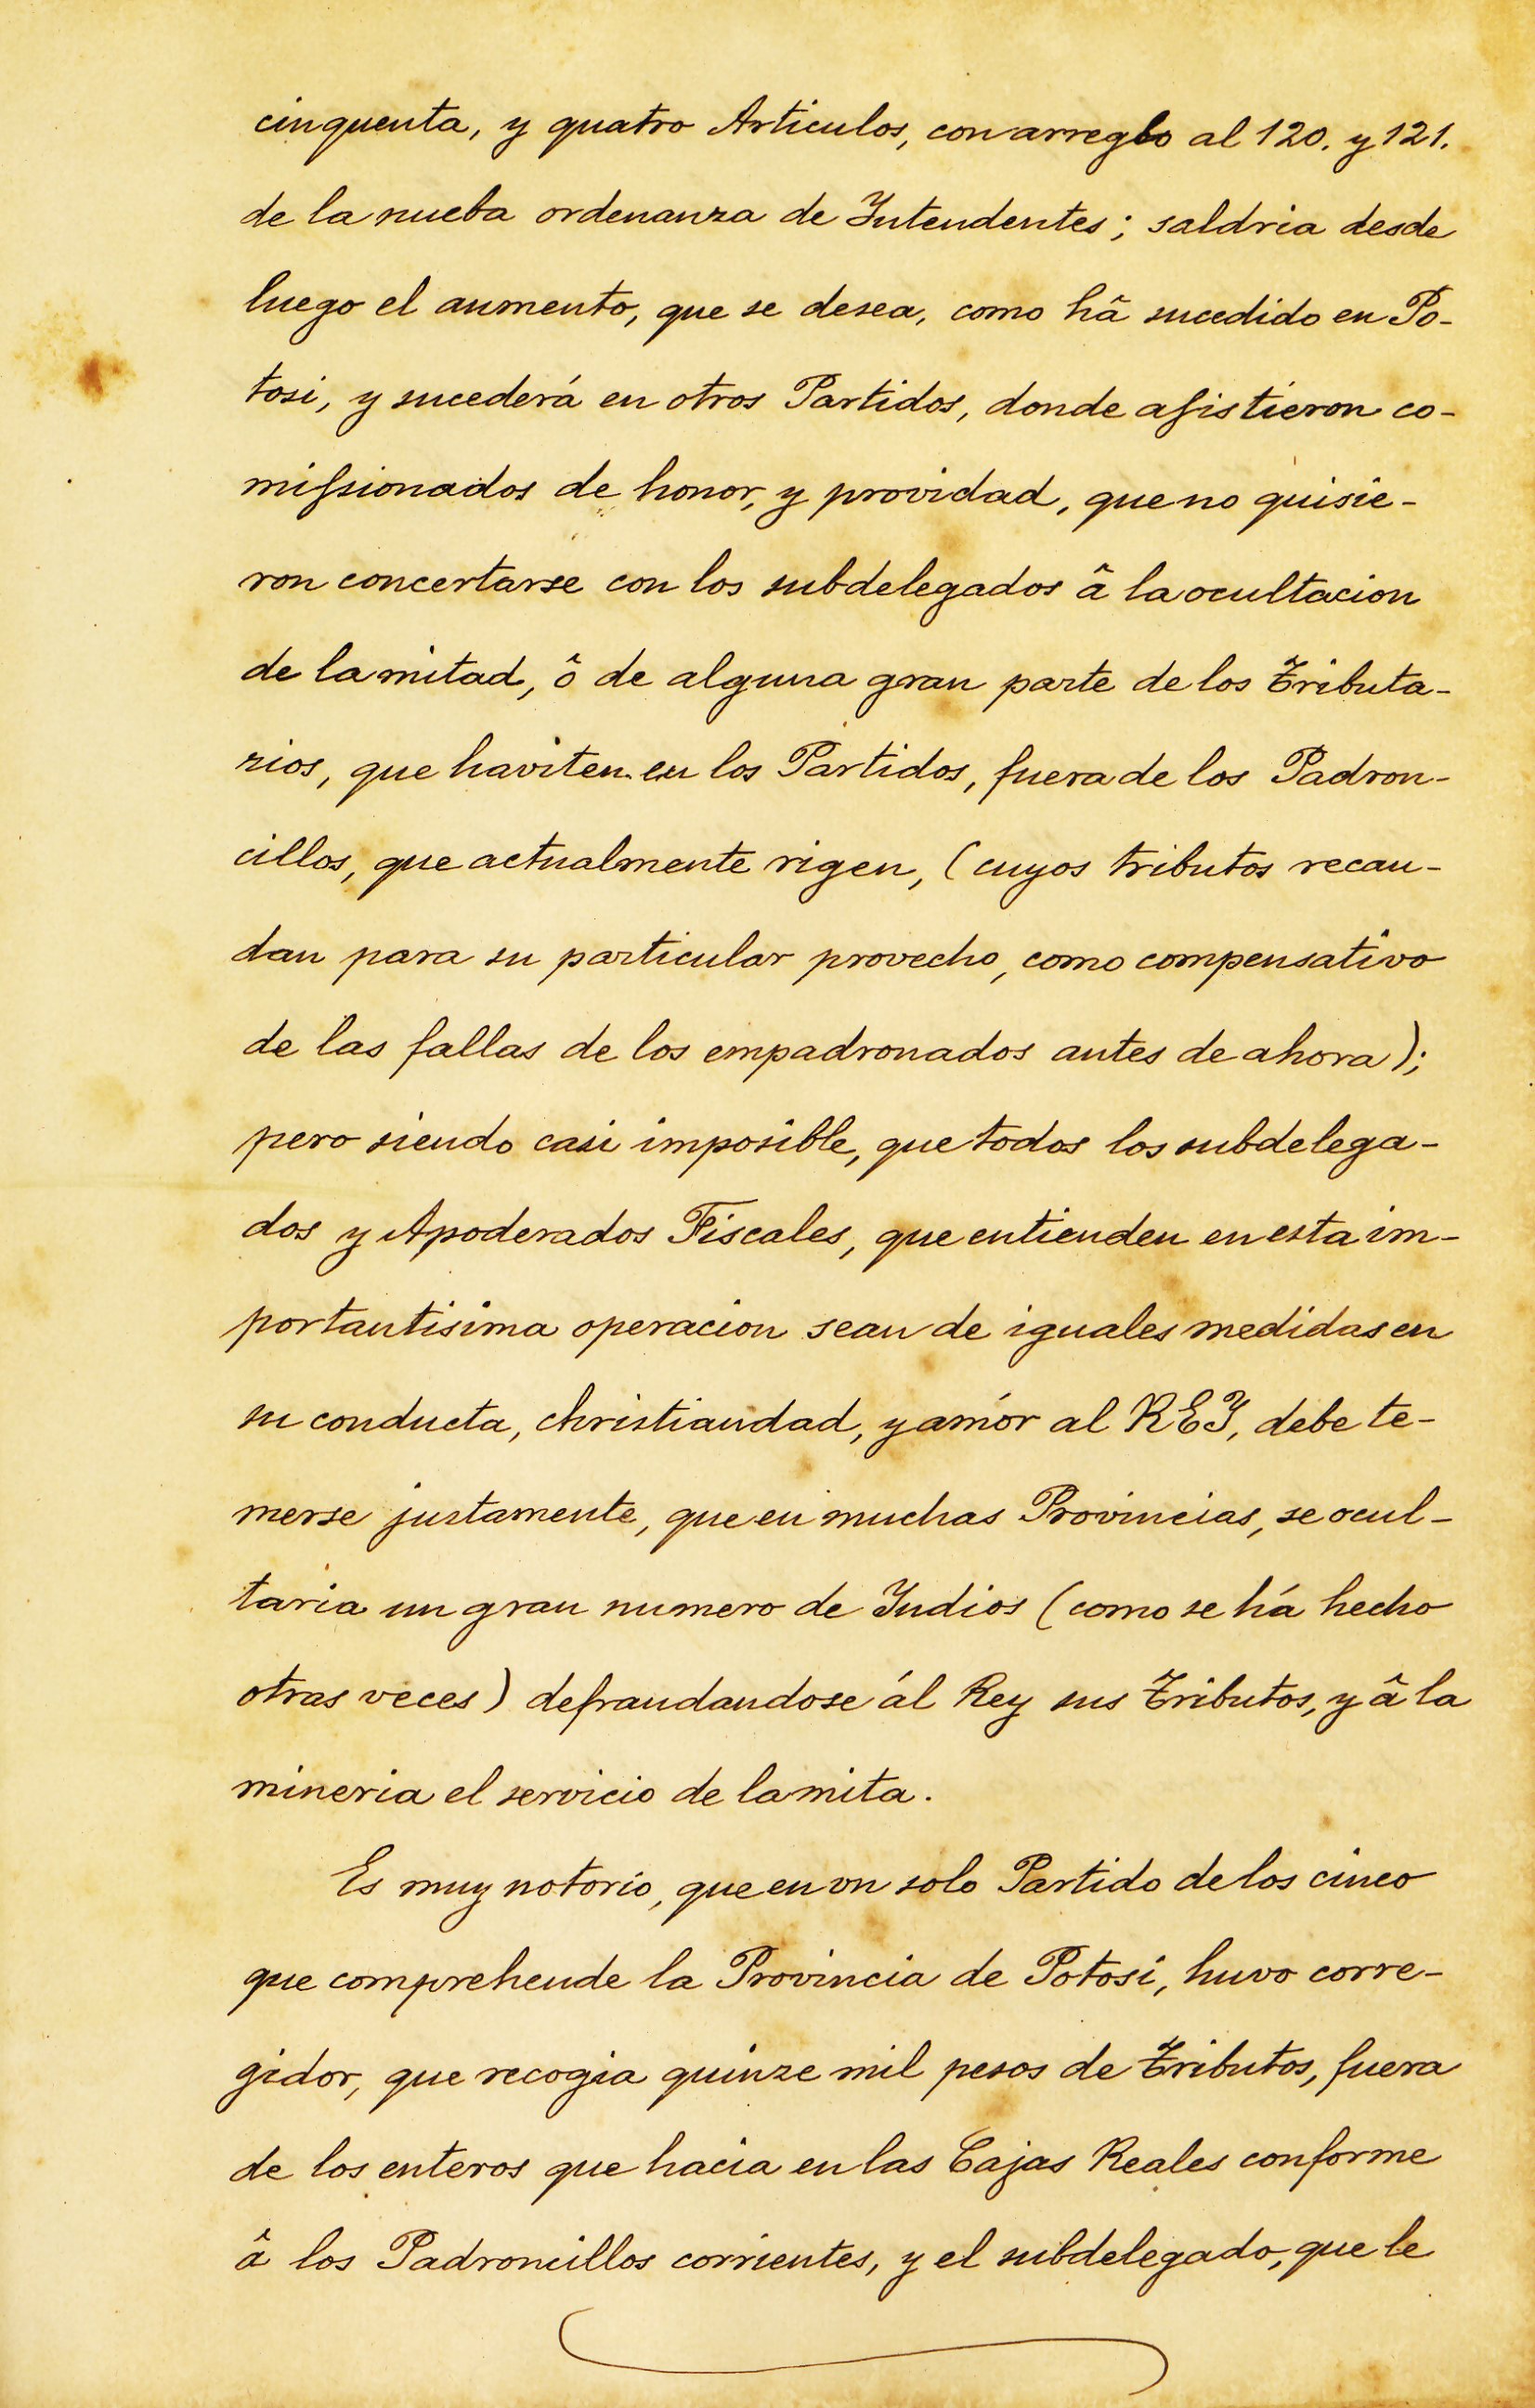 cinquenta, y quatro Articulos, con arreglo al 120. y 121.
de la nueba ordenanza de Intendentes; saldria desde
luego el aumento, que se desea, como hâ sucedido en Po-
tosi, y sucederá en otros Partidos, donde asistieron co-
missionados de honor, y providad, que no quisie-
ron concertarse con los subdelegados â la ocultacion
de la mitad, ô de alguna gran parte de los Tributa-
rios, que haviten en los Partidos, fuera de los Padron-
cillos, que actualmente rigen, (cuyos tributos recau-
dan para su particular provecho, como compensativo
de las fallas de los empadronados antes de ahora);
pero siendo casi imposible, que todos los subdelega-
dos y Apoderados Fiscales, que entienden en esta im-
portantisima operacion sean de iguales medidas en
su conducta, christiandad, y amór al REY, debe te-
merse justamente, que en muchas Provincias, se ocul-
taria un gran numero de Yndios (como se há hecho
otras veces) defraudandose ál Rey sus Tributos, y â la
mineria el servicio de la mita.
Es muy notorio, que en vn solo Partido de los cinco
que comprehende la Provincia de Potosi, huvo corre-
gidor, que recogia quinze mil pesos de Tributos, fuera
de los enteros que hacia en las Cajas Reales conforme
â los Padroncillos corrientes, y el subdelegado, que le